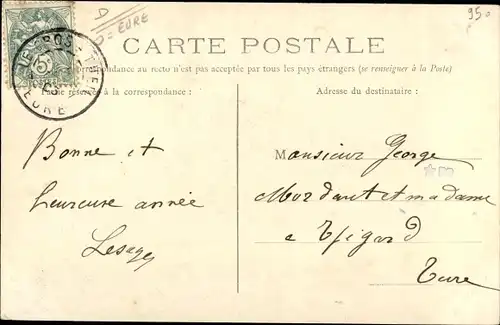 D = EURE
950
CARTE POSTALE
La correspondance au recto n'est pas acceptée par tous les pays étrangers (se renseigner à la Poste)
Partie réservée à la correspondance :
Adresse du destinataire :
EURE
Bonne et
heureuse année
Lesage
Monsieur George
Mordant et madame
a
Eure